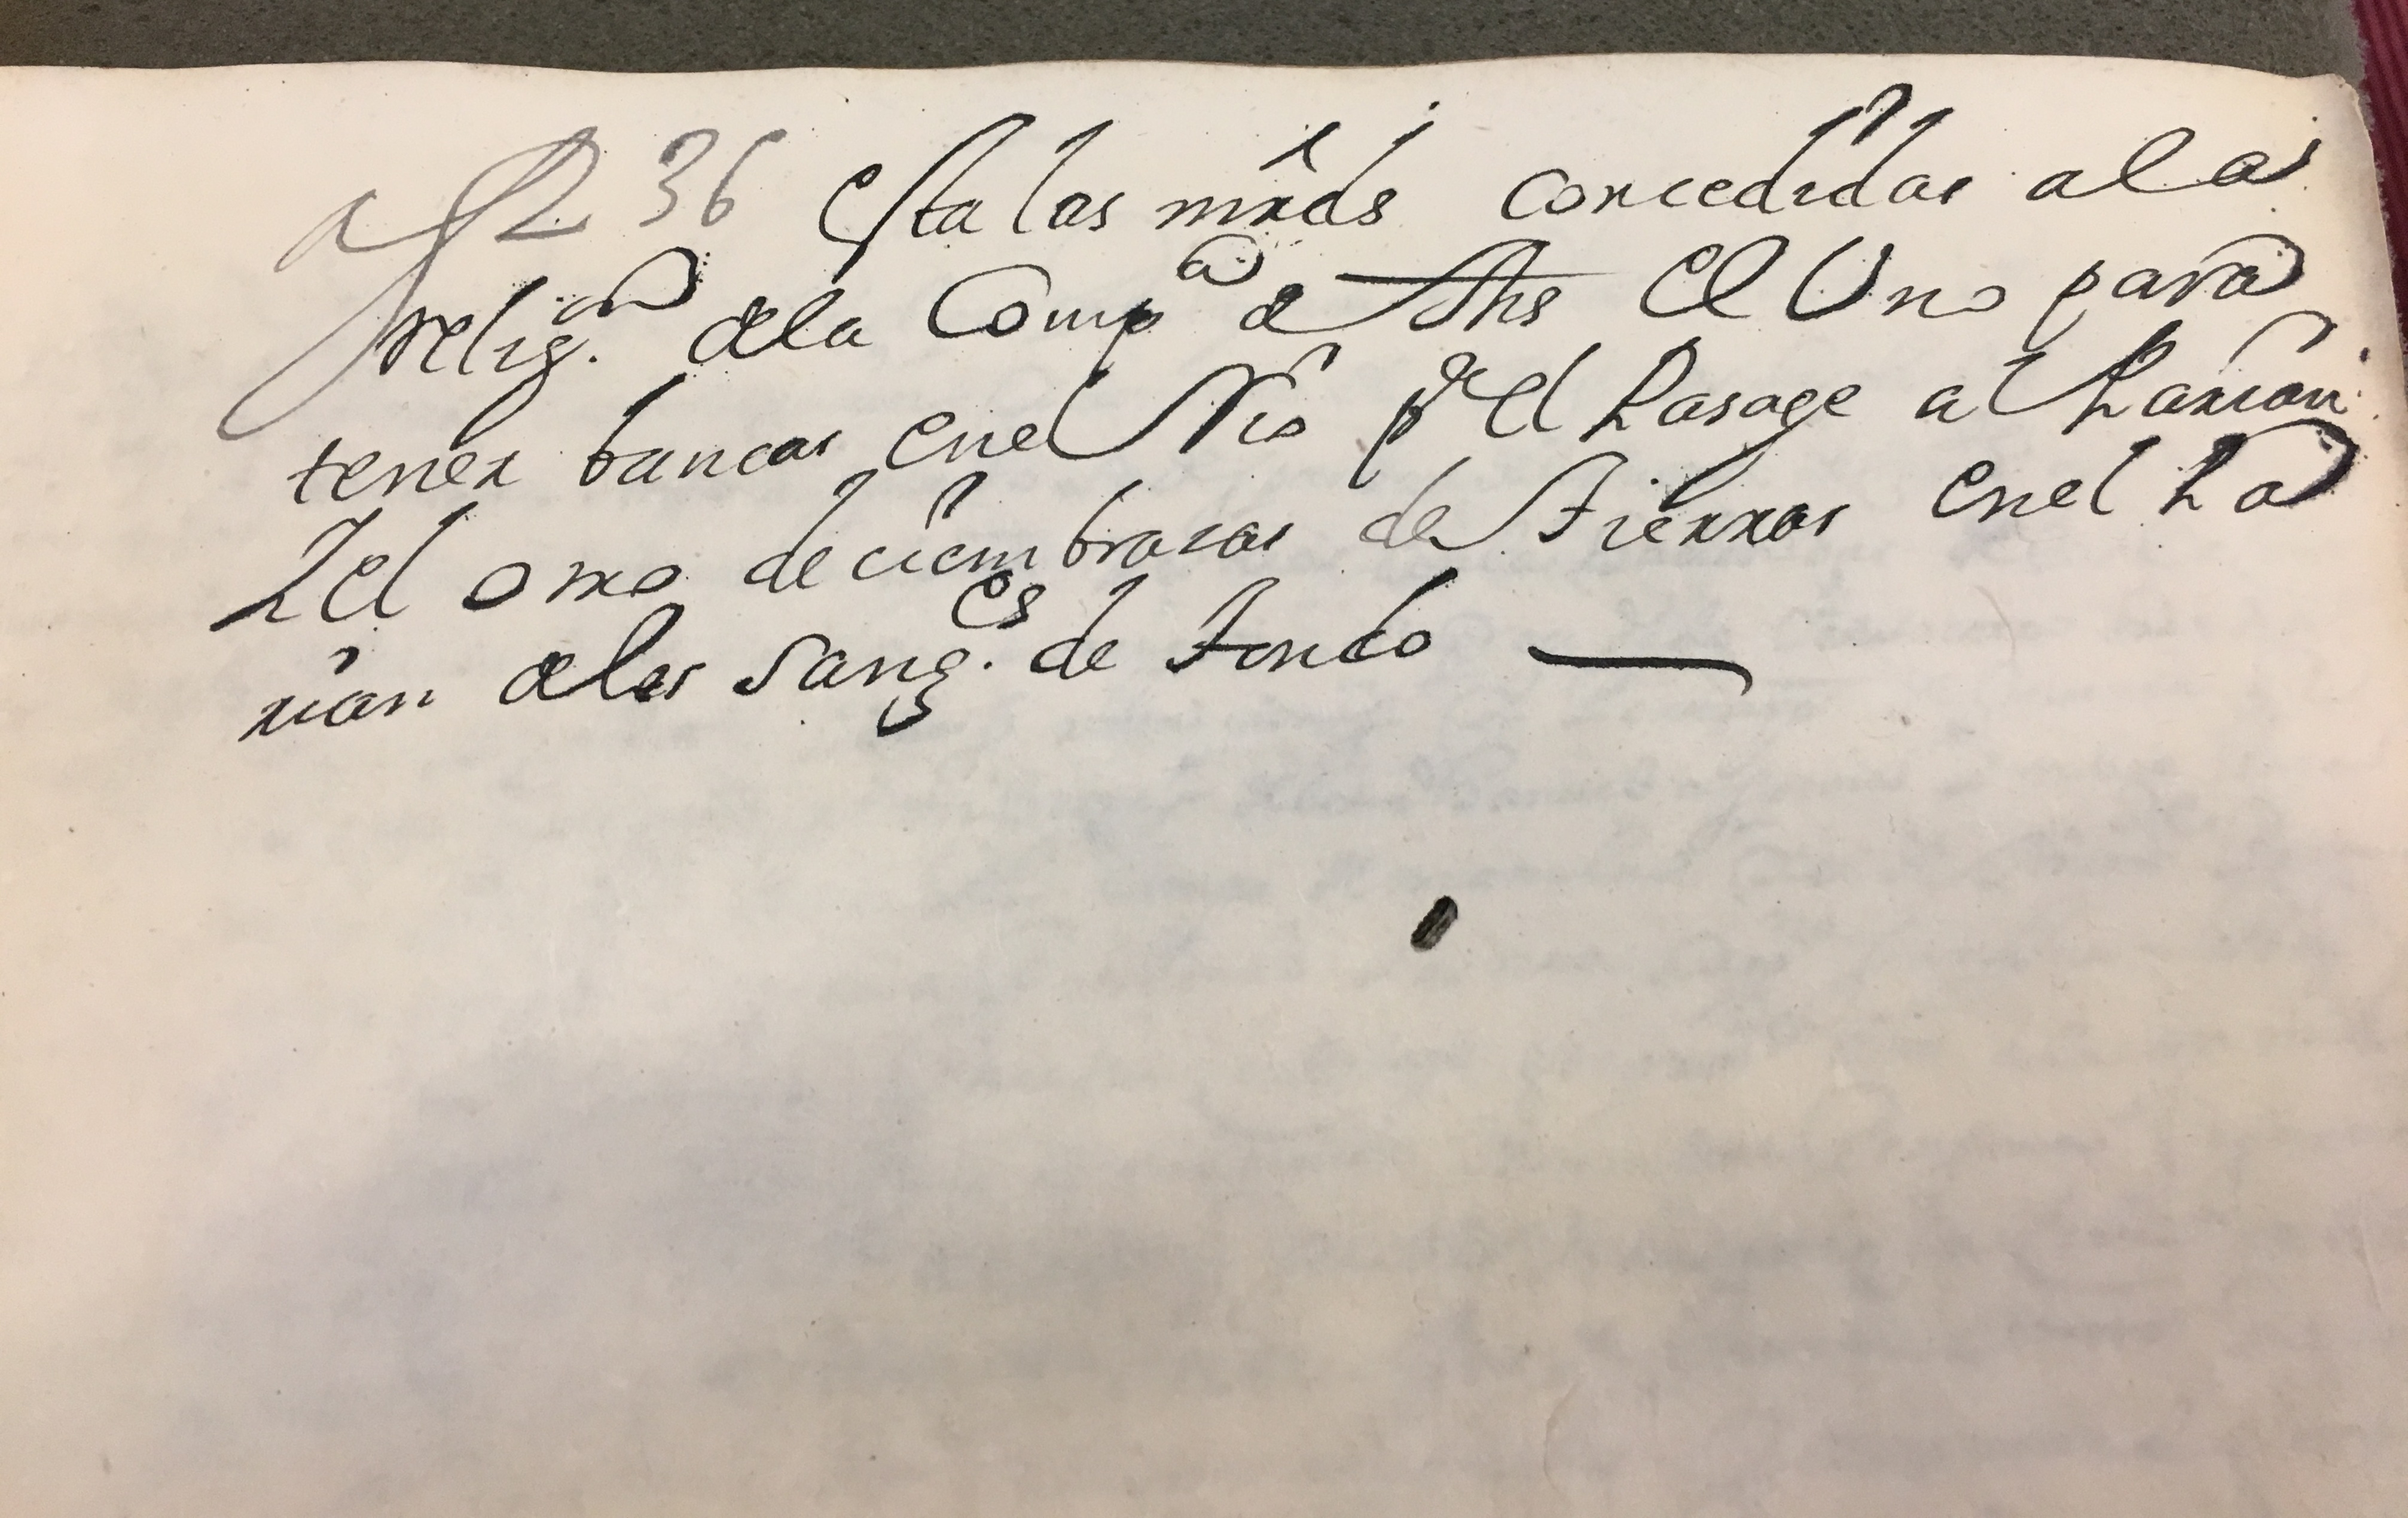 a f 236 esta las mrds concedidas a las
relig.on de la Comp.a de Jhs el Uno para
tener bancas en el Rio p.a el Pasage al Parian
Y el otro de cien brasas de tierras en el Pa
rian de los Sang.es de tondo —